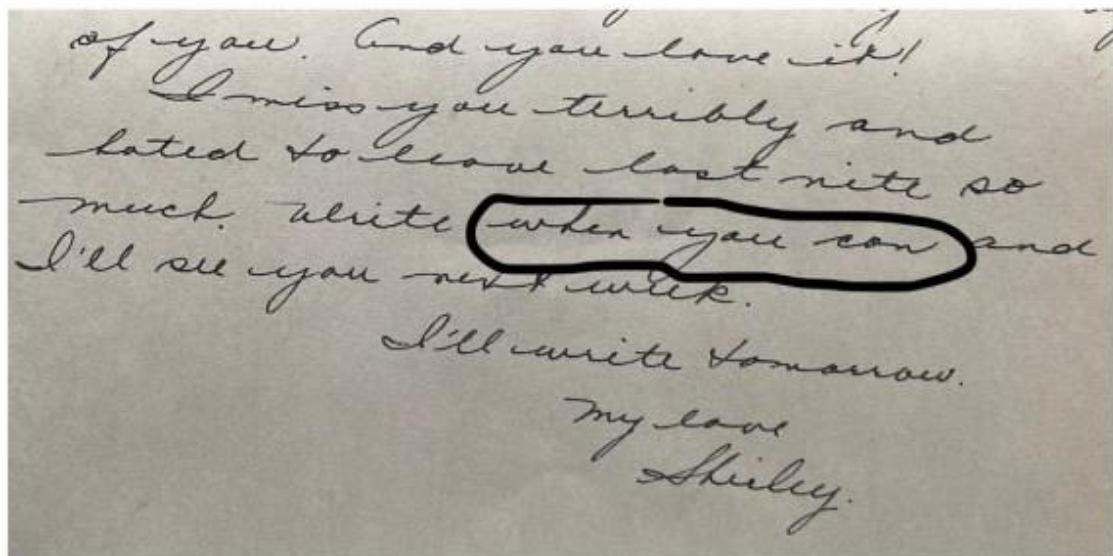 of you. And you love it!
I miss you terribly and
hated to leave last nite so
much. Write when you can and
I'll see you next week.
I'll write tomorrow.
My love
Shirley.